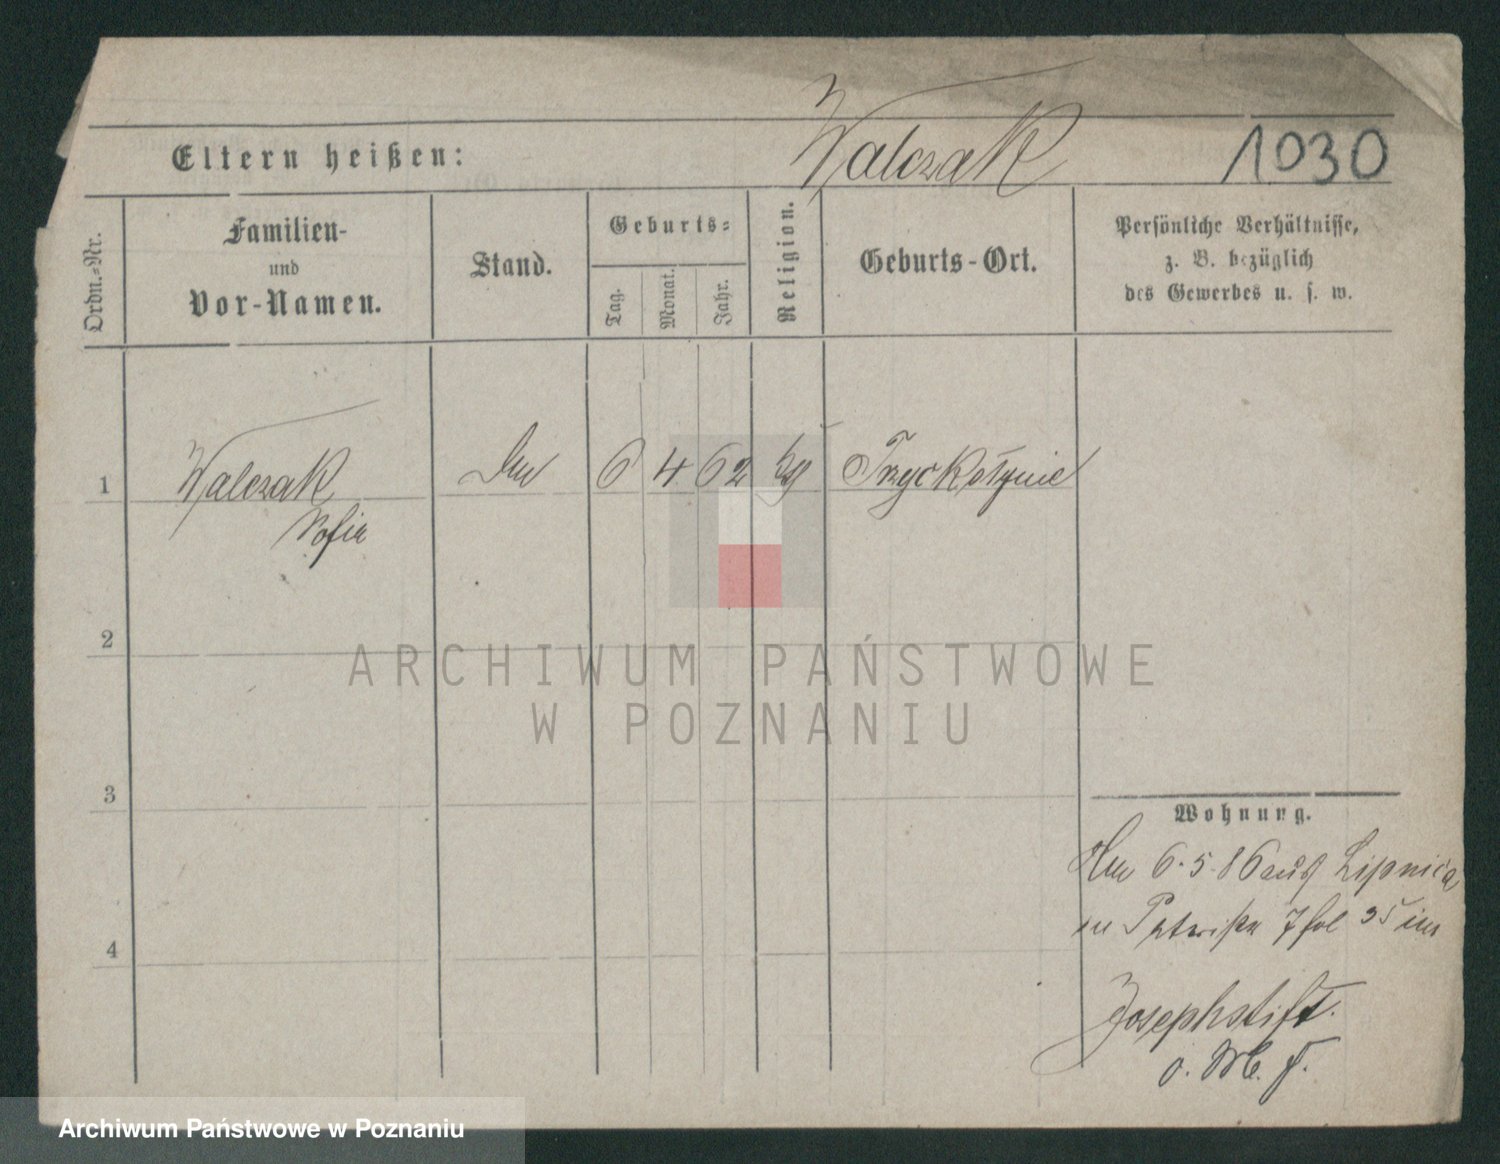 Walczak
1030
Eltern heißen:
Ordn.-Nr.
Familien-
und
Vor-Namen.
Stand.
Geburts-
Tag.
Monat.
Jahr.
Religion.
Geburts-Ort.
Persönliche Verhältnisse,
z. B. bezüglich
des Gewerbes u. s. w.
1
Walczak
Sofia
6 4 62
2
ARCHIWUM PAŃSTWOWE
W POZNANIU
3
Wohnung.
6.5.86 aus Lipnica
4
Josephstift.
Archiwum Państwowe w Poznaniu